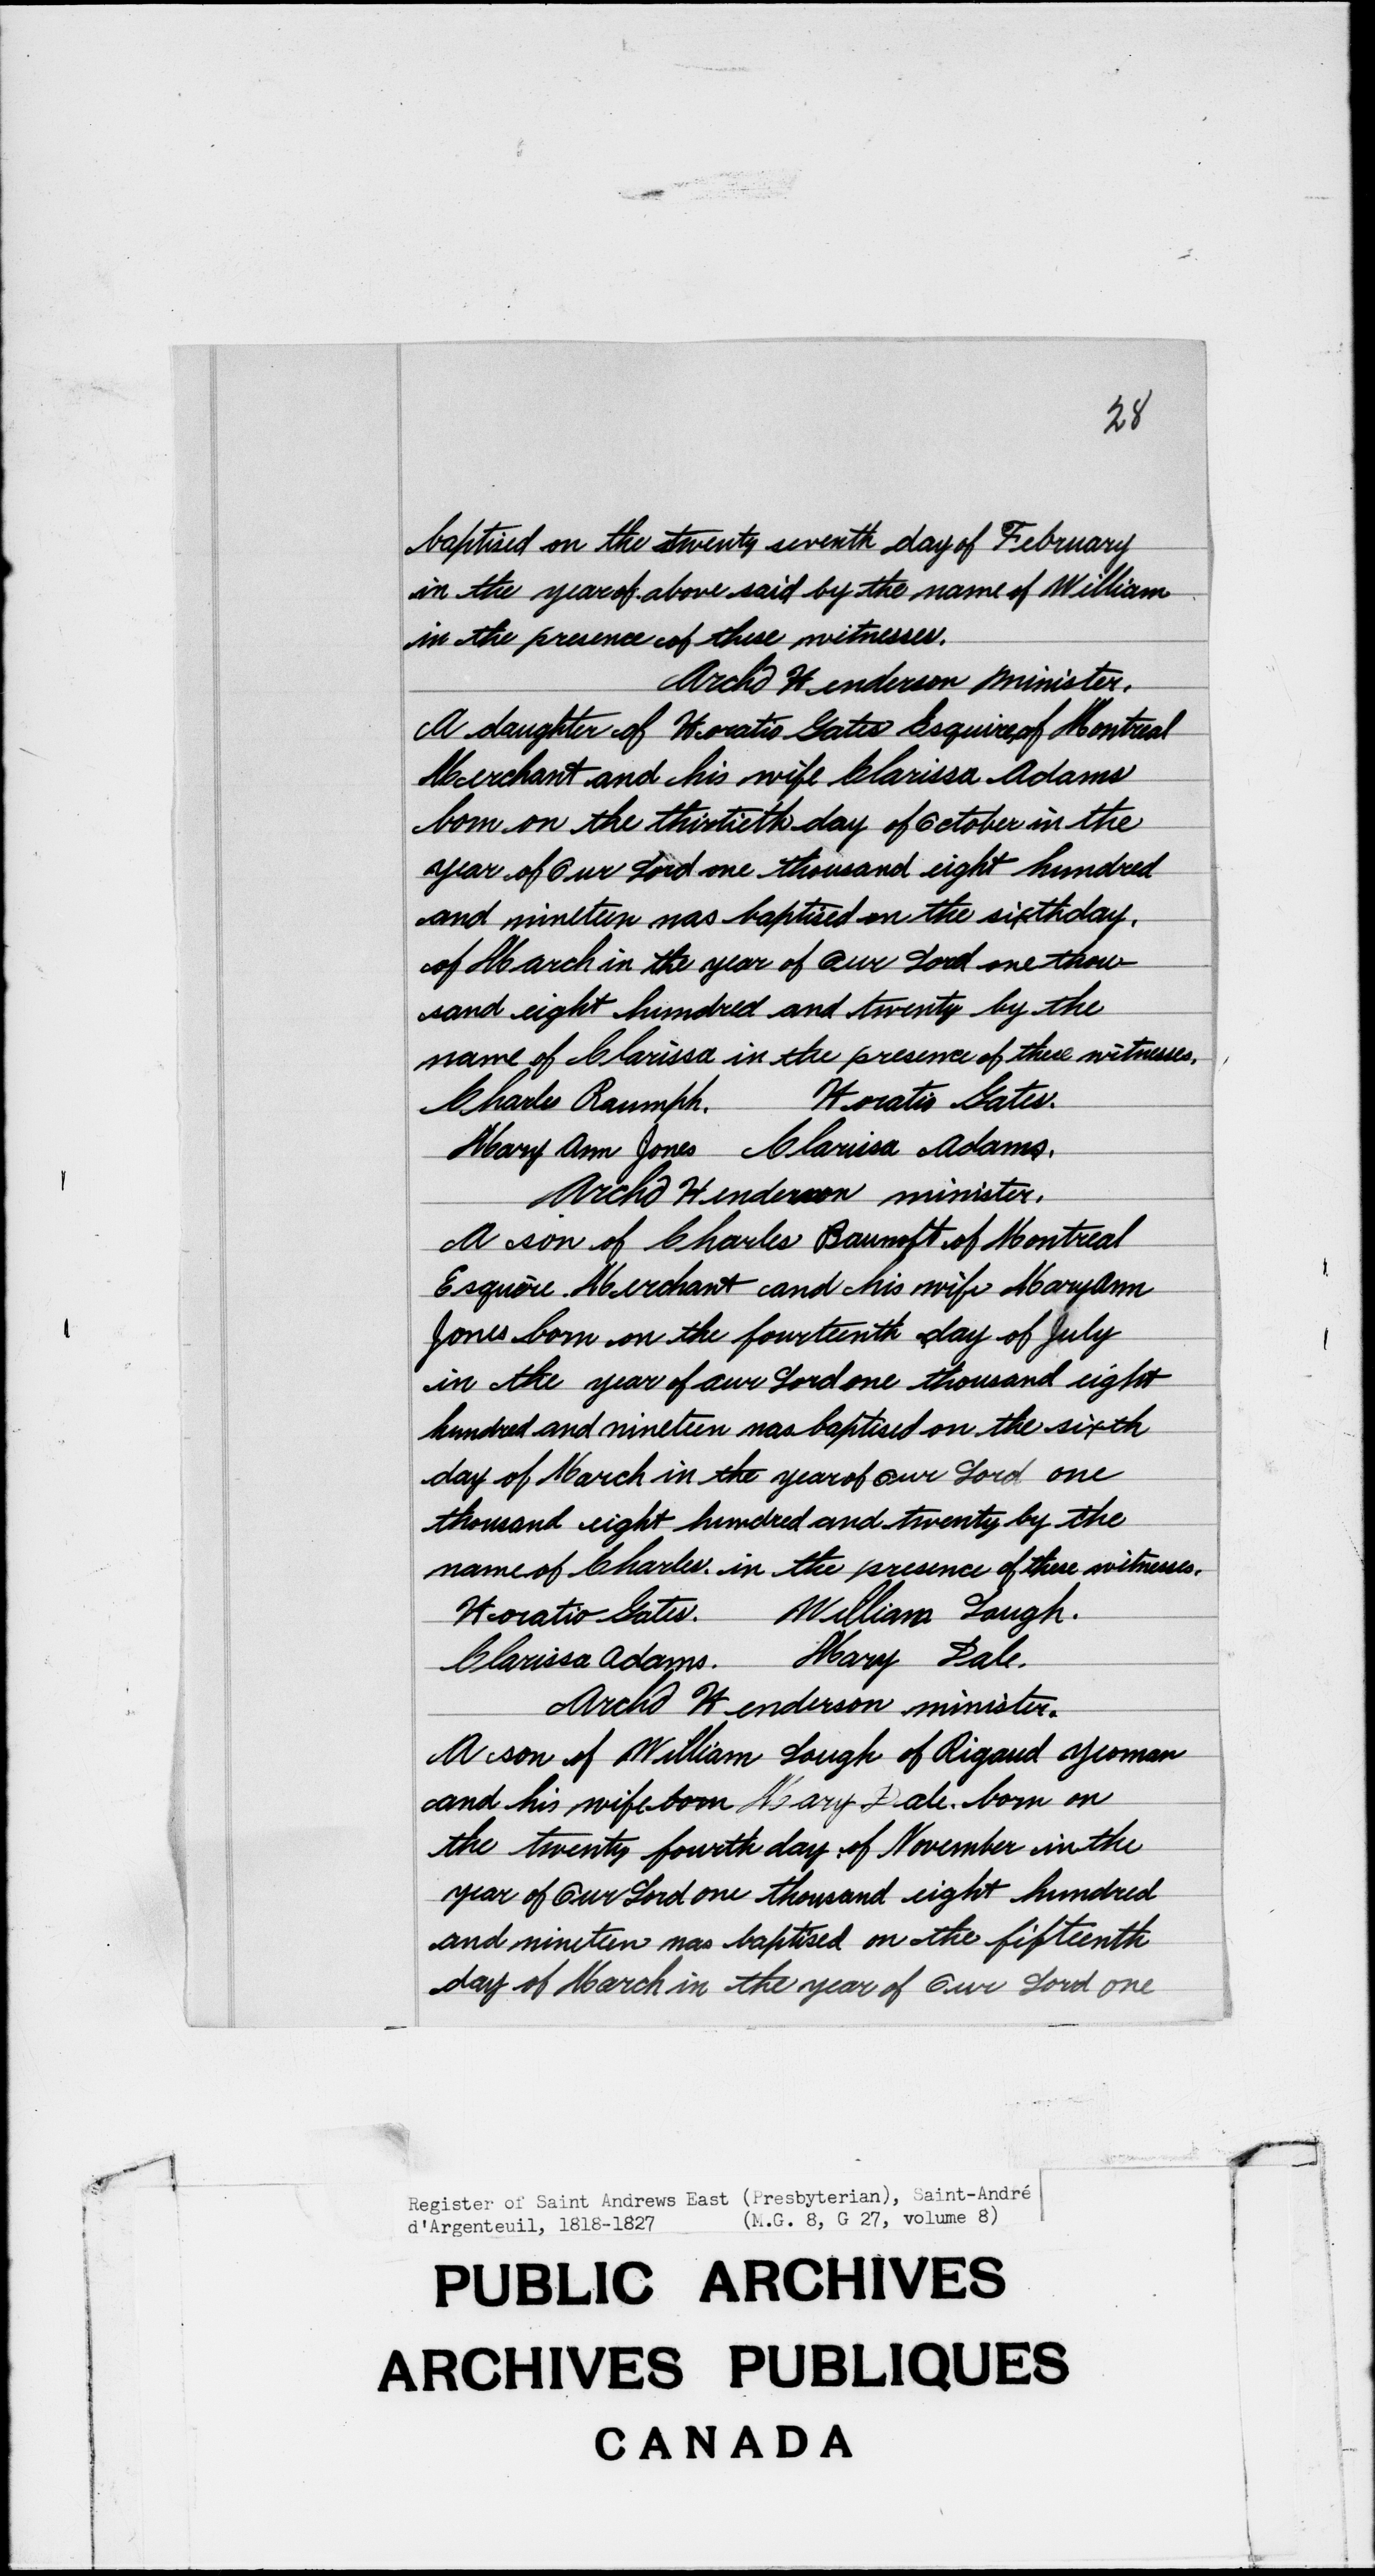 28
baptised on the twenty seventh day of February
in the year of above said by the name of William
in the presence of these witnesses.
Archd Henderson minister.
A daughter of Horatio Gates Esquire of Montreal
Merchant and his wife Clarissa Adams
born on the thirtieth day of October in the
year of Our Lord one thousand eight hundred
and nineteen was baptised on the sixth day.
of March in the year of Our Lord one thou-
sand eight hundred and twenty by the
name of Clarissa in the presence of these witnesses.
Charles Raumph. Horatio Gates.
Mary Ann Jones Clarissa Adams.
Archd Henderson minister.
A son of Charles Baumoft of Montreal
Esquire. Merchant and his wife Mary Ann
Jones born on the fourteenth day of July
in the year of our Lord one thousand eight
hundred and nineteen was baptised on the sixth
day of March in the year of our Lord one
thousand eight hundred and twenty by the
name of Charles. in the presence of these witnesses.
Horatio Gates. William Lough.
Clarissa Adams. Mary Dale.
Archd Henderson minister.
A son of William Lough of Rigaud yeoman
and his wife born Mary Dale. born on
the twenty fourth day of November in the
year of Our Lord one thousand eight hundred
and nineteen was baptised on the fifteenth
day of March in the year of Our Lord one
Register of Saint Andrews East (Presbyterian), Saint-André
d'Argenteuil, 1818-1827 (M.G. 8, G 27, volume 8)
PUBLIC ARCHIVES
ARCHIVES PUBLIQUES
CANADA